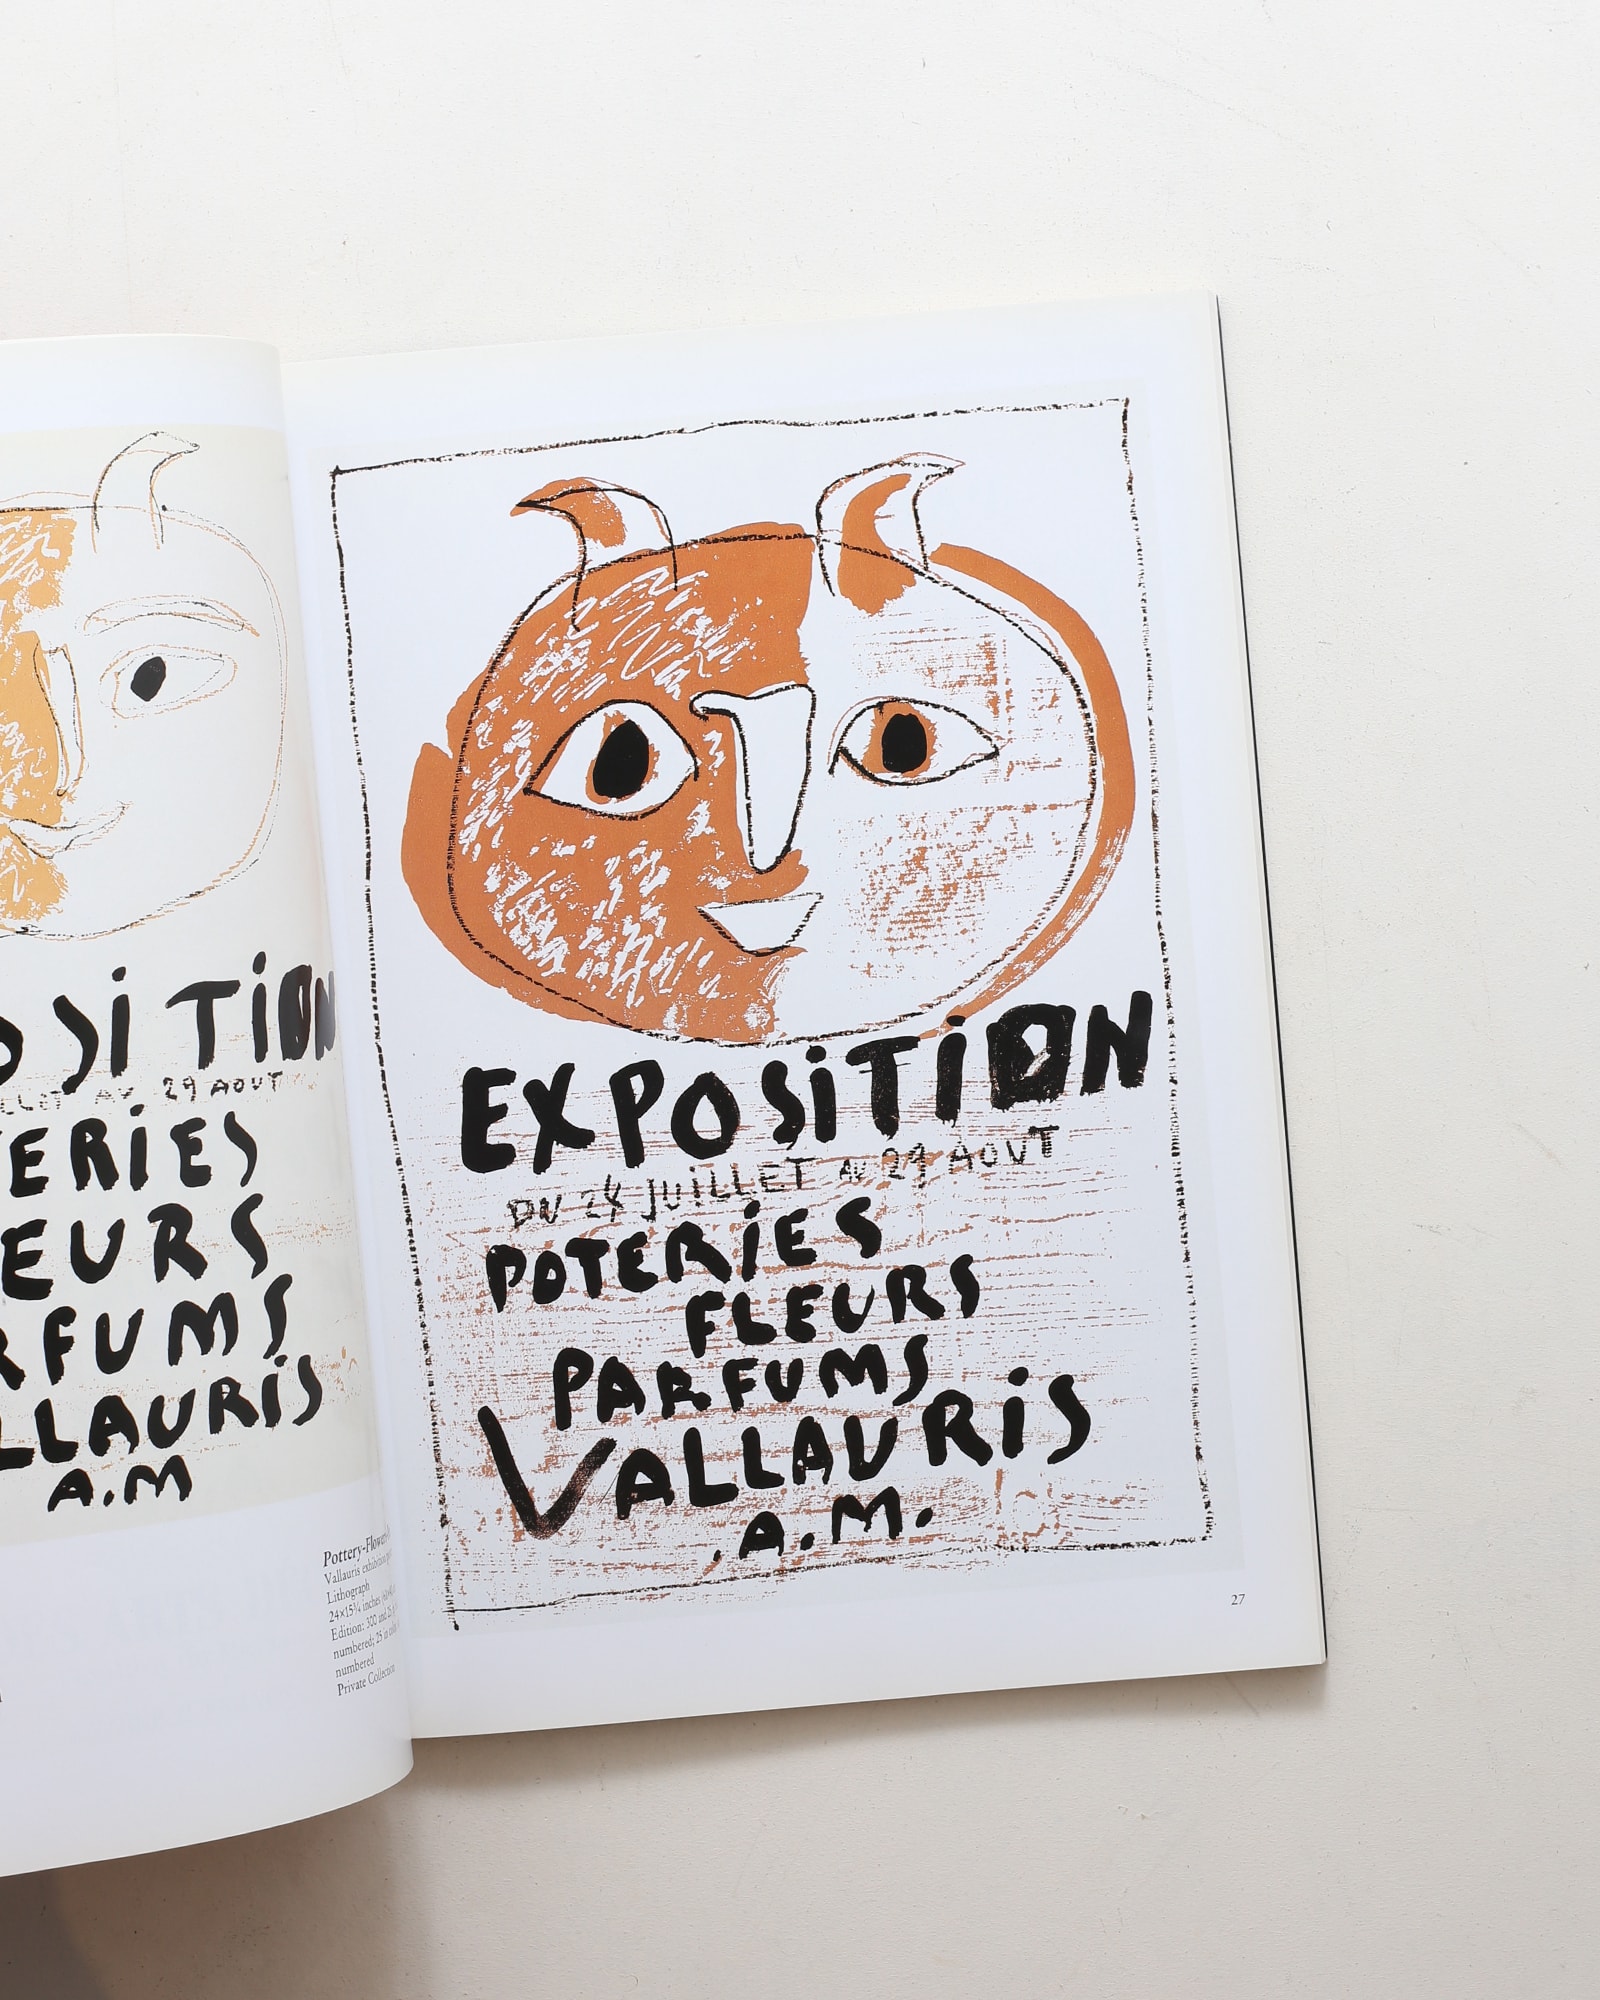 OSITION
AU 29 AOUT
TERIES
EURS
RFUMS
LLAURIS
A.M
Pottery-Flowers
Vallauris exhibition
Lithograph
24×15¾ inches
Edition: 300 and
numbered; 25 in
numbered
Private Collection
EXPOSITION
DU 24 JUILLET AU 29 AOUT
POTERIES
FLEURS
PARFUMS
VALLAURIS
A.M.
27